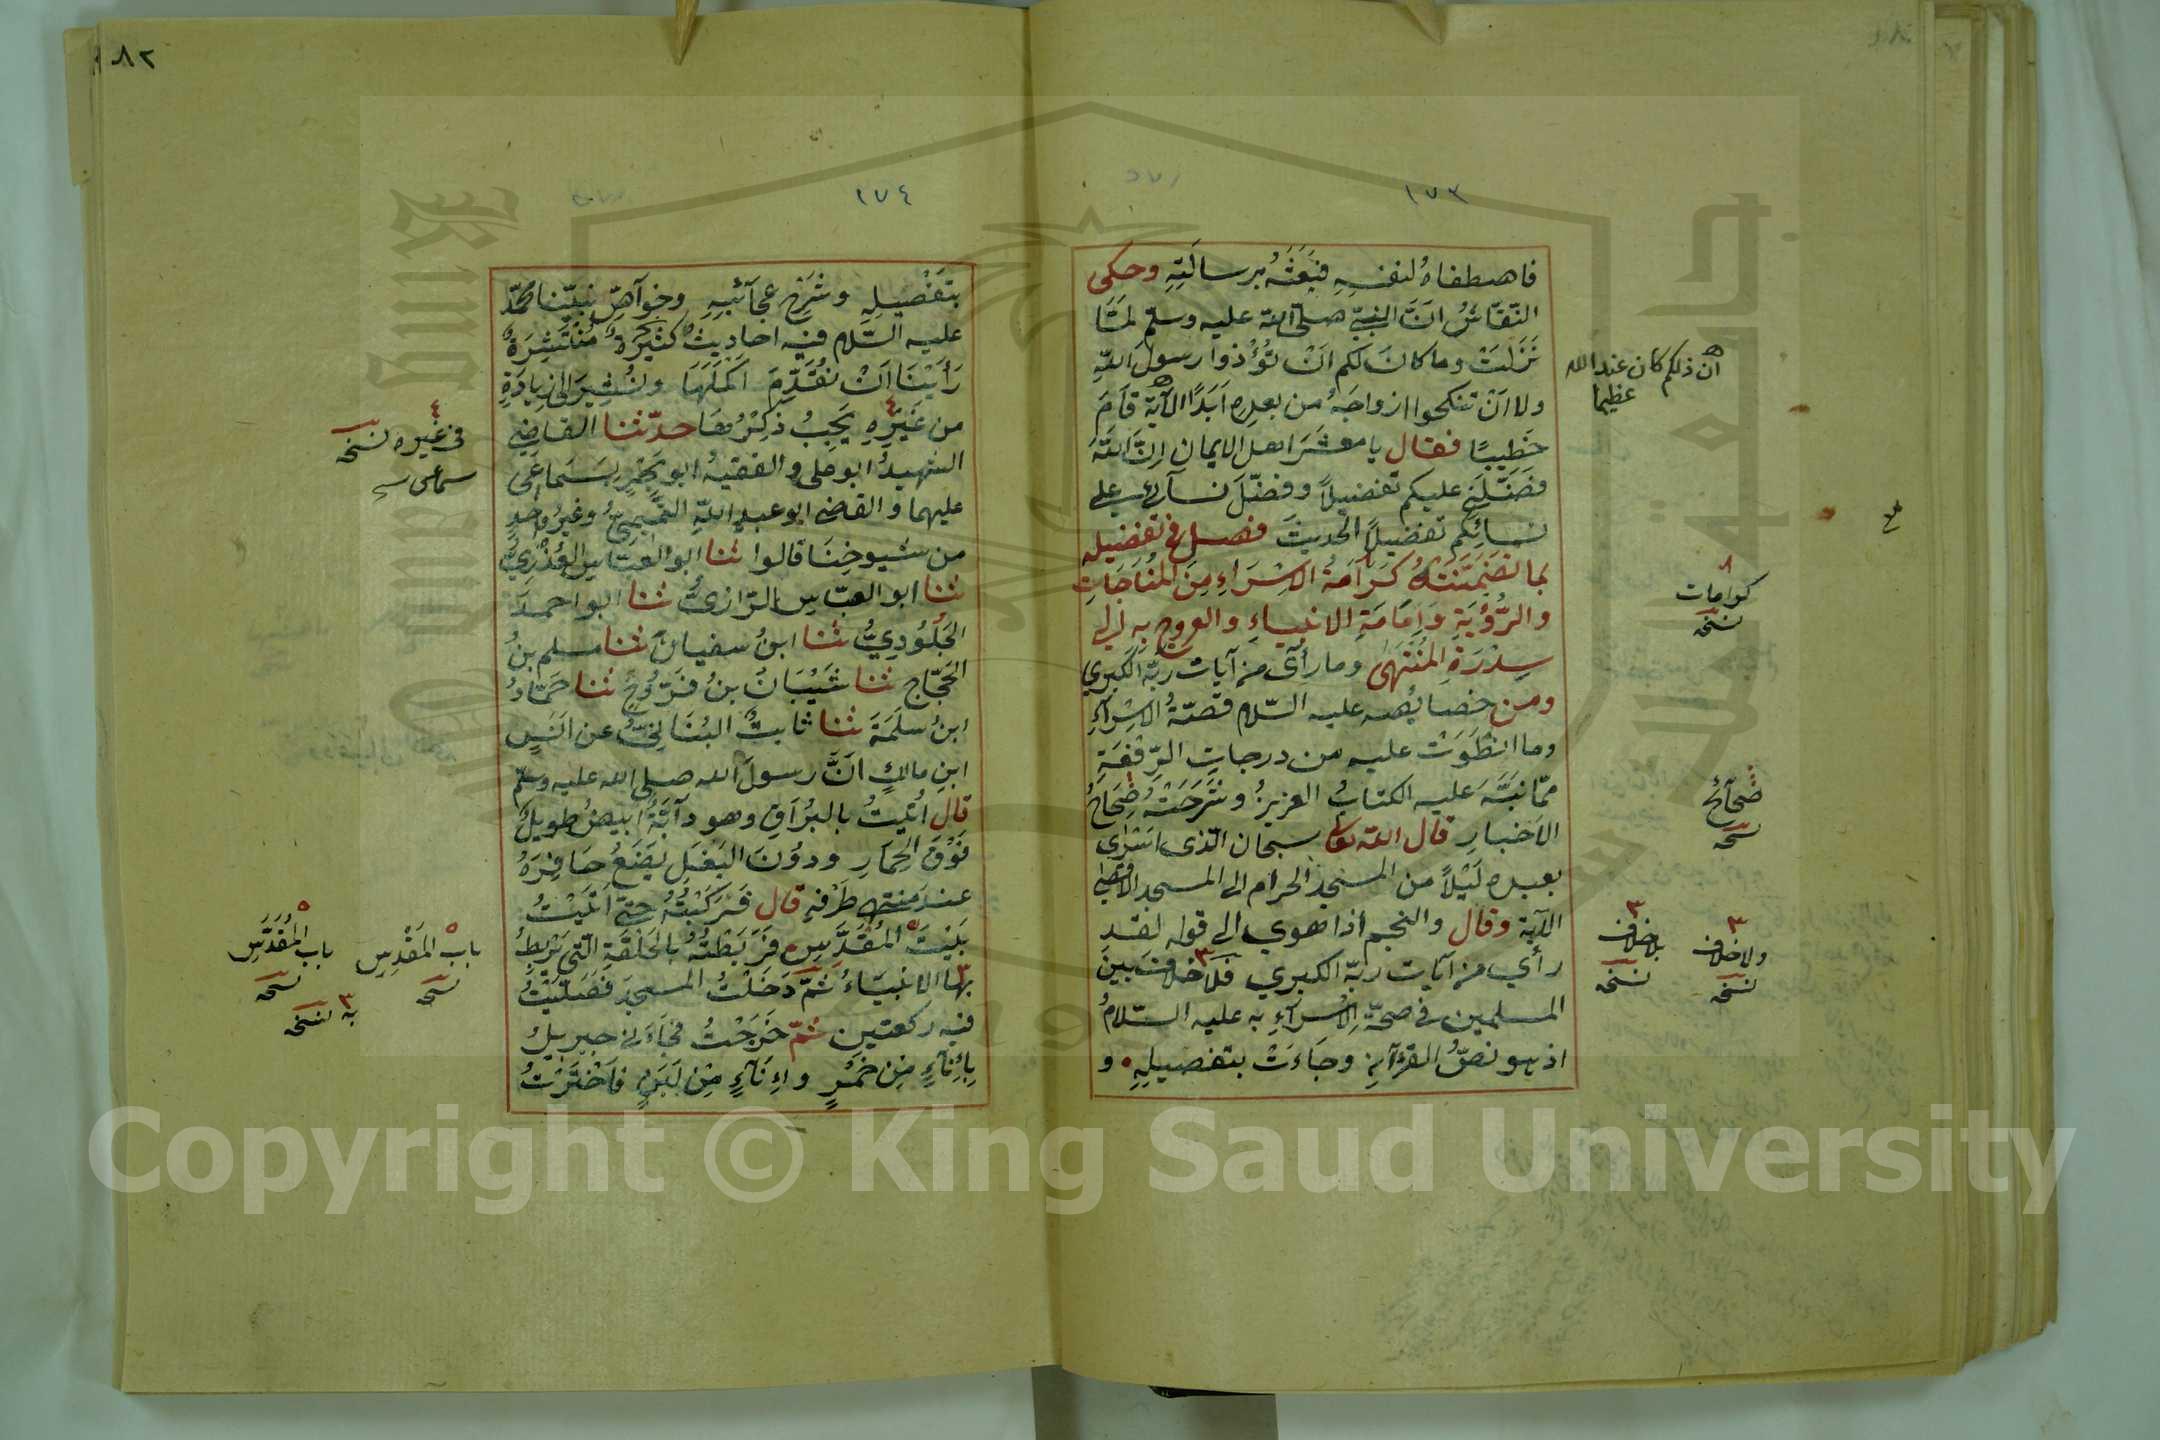 ١٧٣
فاصطفاهُ لنفسِهِ فبَعَثَهُ برسالَتِهِ وحكى
النّقّاشُ انَّ النبيّ صلى الله عليه وسلم لمّا
نَزَلَتْ وما كانَ لكم اَنْ تُؤْذوا رسولَ اللّهِ
ولا اَنْ تنكحوا ازواجَهُ من بعدِه اَبَدًا الآيَةَ قامَ
خَطِيبًا فقال يا معشَرَ اهل الايمان اِنَّ اللّهَ
فضّلَنِي عليكم تفضيلاً وفضّلَ نسآئي على
نسائِكم تفضيلاً الحديثَ فصل فى تفضيله
بما تضَمَّنَتْهُ كَرَامَةُ الاِسْرَاءِ مِنَ المُنَاجَاتِ
والرُّؤْيَةِ وَاِمَامَةِ الانبياءِ والعروجِ بِهِ اِلى
سِدْرَةِ المُنْتَهٰى وما رأى من آيات ربّه الكبرى
ومن خصايصه عليه السّلام قصّةُ الاِسْرَآءِ
وما انْطَوَتْ عليه من درجاتِ الرِّفْعَةِ
ممّا نبَّهَ عليه الكتابُ العزيزُ وشَرَحَتْهُ صِحَاحُ
الاَخبارِ قال الله تعا سبحان الّذى اَسْرَى
بعبدِه لَيْلاً من المسجد الحرام الى المسجد الاقصى
الآيةَ وقال والنجم اذا هوى الى قوله لقد
رأى من آيات ربّه الكبرى فلا خلافَ بينَ
المسلمين فى صحّةِ الاِسْرَآءِ به عليه السّلامُ
اذ هو نصُّ القرآنِ وجَاءَتْ بتفصيلِهِ و
انّ ذلكم كان عند الله
عظيما
كرامات
نسخه
صَحآئح
نسخه
بلا خلاف
نسخه
ولا خلاف
نسخه
١٧٤
بتَفْصيلِهِ وشَرْحِ عجآئبِهِ وخوآصِّ نبيّنا محمّدٍ
عليه السّلام فيه احاديثُ كثيرَةٌ مُنْتَشِرَةٌ
رَأَيْنَا اَنْ نُقَدِّمَ اَكْمَلَهَا ونُشِيرَ الى زيادَةٍ
من غَيْرِهِ يَجِبُ ذِكْرُهَا حدّثنا القاضى
الشهيدُ ابو على والفقيهُ ابو بَحْرٍ بسَمَاعِى
عليهما والقاضى ابو عبدِ اللّهِ التَّمِيمِىُّ وغيرُ واحدٍ
من شيوخِنَا قالوا ثنا ابو العبّاسِ العُذْرِىُّ
ثنا ابو العبّاسِ الرّازىُّ ثنا ابو احمدَ
الجُلُودِىُّ ثنا ابنُ سفيانَ ثنا مسلم بنُ
الحَجّاجِ ثنا شَيْبَانُ بنُ فَرُّوخٍ ثنا حَمّادُ
ابنُ سلَمَةَ ثنا ثابتٌ البُنَانِىُّ عن انَسِ
ابنِ مالكٍ انَّ رسولَ الله صلى الله عليه وسلّم
قالَ اُتيتُ بالبُرَاقِ وهو دآبّةٌ ابيضُ طويلٌ
فَوْقَ الحِمَارِ ودُونَ البَغْلِ يَضَعُ حافِرَهُ
عندَ منتهى طَرْفِهِ قال فَرَكِبْتُهُ حتى اَتَيْتُ
بَيْتَ المُقَدَّسِ فرَبَطْتُهُ بالحَلْقَةِ الّتى يَرْبِطُ
بهَا الانبيَاءُ ثمّ دَخَلْتُ المسجدَ فصَلّيْتُ
فيه ركعتين ثمّ خَرَجْتُ فجَآءَنى جبريلُ
بِاِنَآءٍ مِن خَمْرٍ واِنَآءٍ مِنْ لَبَنٍ فاخْتَرْتُ
٨٢
فى غيره نسخه
سماعى
باب المَقْدِسِ
نسخه
باب المُقَدَّسِ
نسخه
به نسخه
Copyright © King Saud University